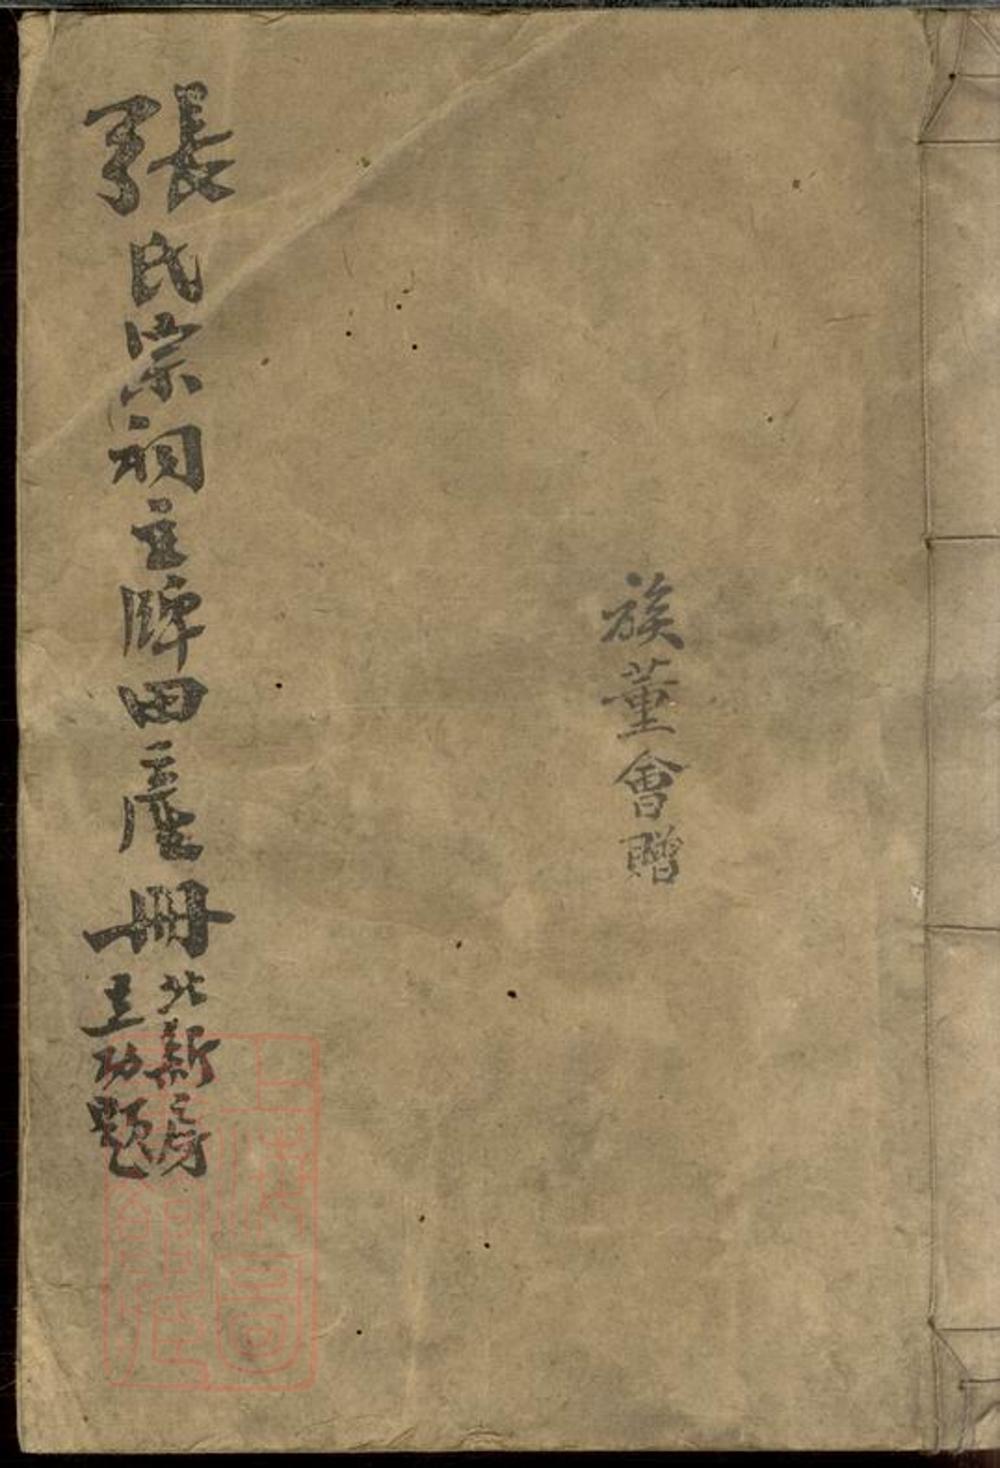 族董會贈
張氏宗祠主牌田產冊
北新房
立功題